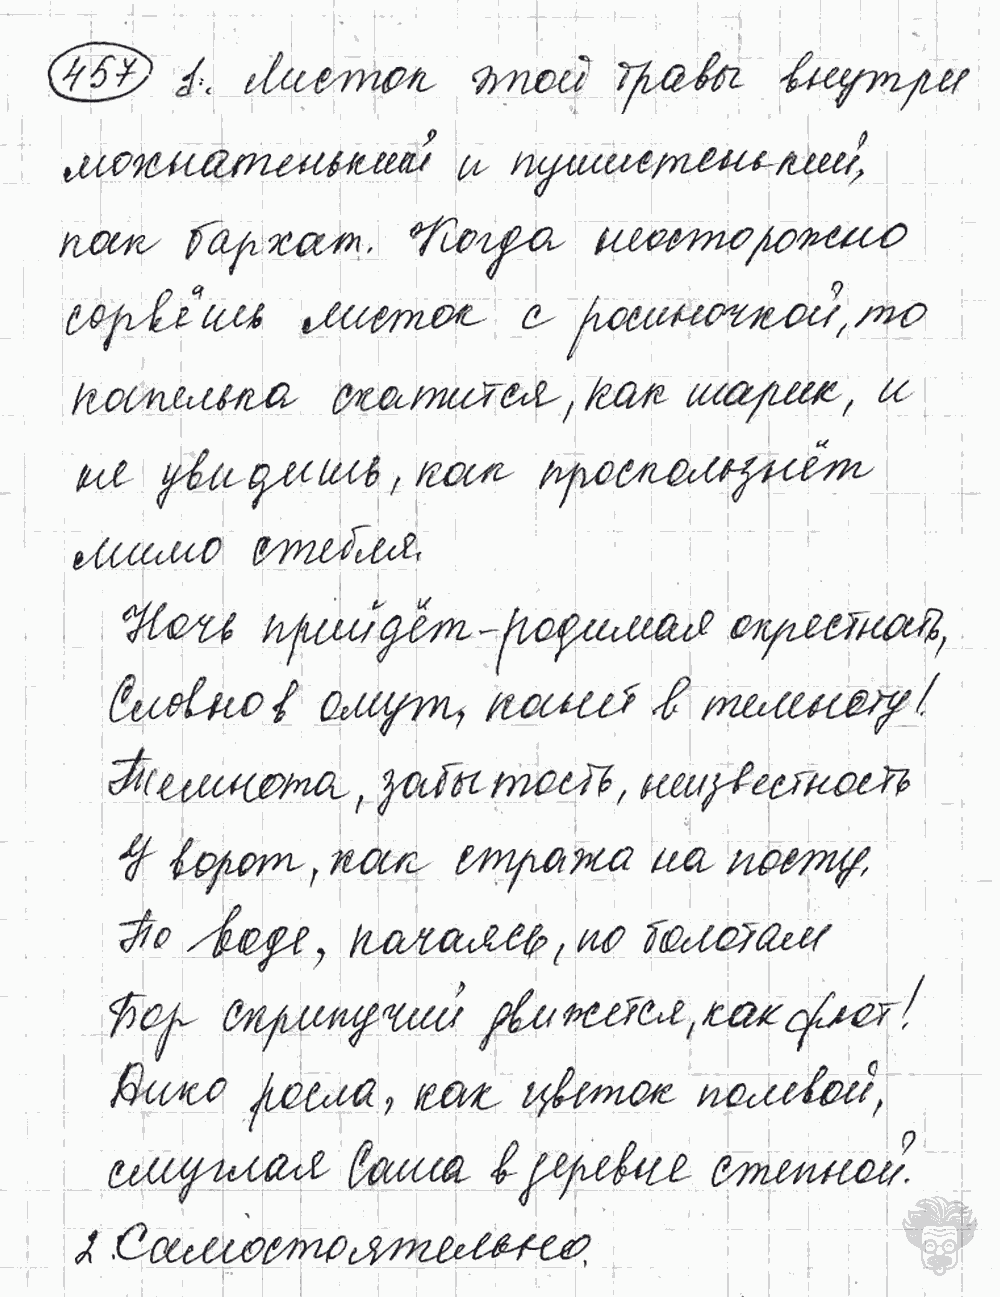 457 1. Листок этой травы внутри
мохнатенький и пушистенький,
как бархат. Когда неосторожно
сорвёшь листок с росиночкой, то
капелька скатится, как шарик, и
не увидишь, как проскользнёт
мимо стебля.
Ночь прийдёт - родимая окрестность,
Словно в омут, канет в темноту!
Темнота, забытость, неизвестность
У ворот, как стража на посту.
По воде, качаясь, по болотам
Бор скрипучий движется, как флот!
Дико росла, как цветок полевой,
смуглая Саша в деревне степной.
2. Самостоятельно.